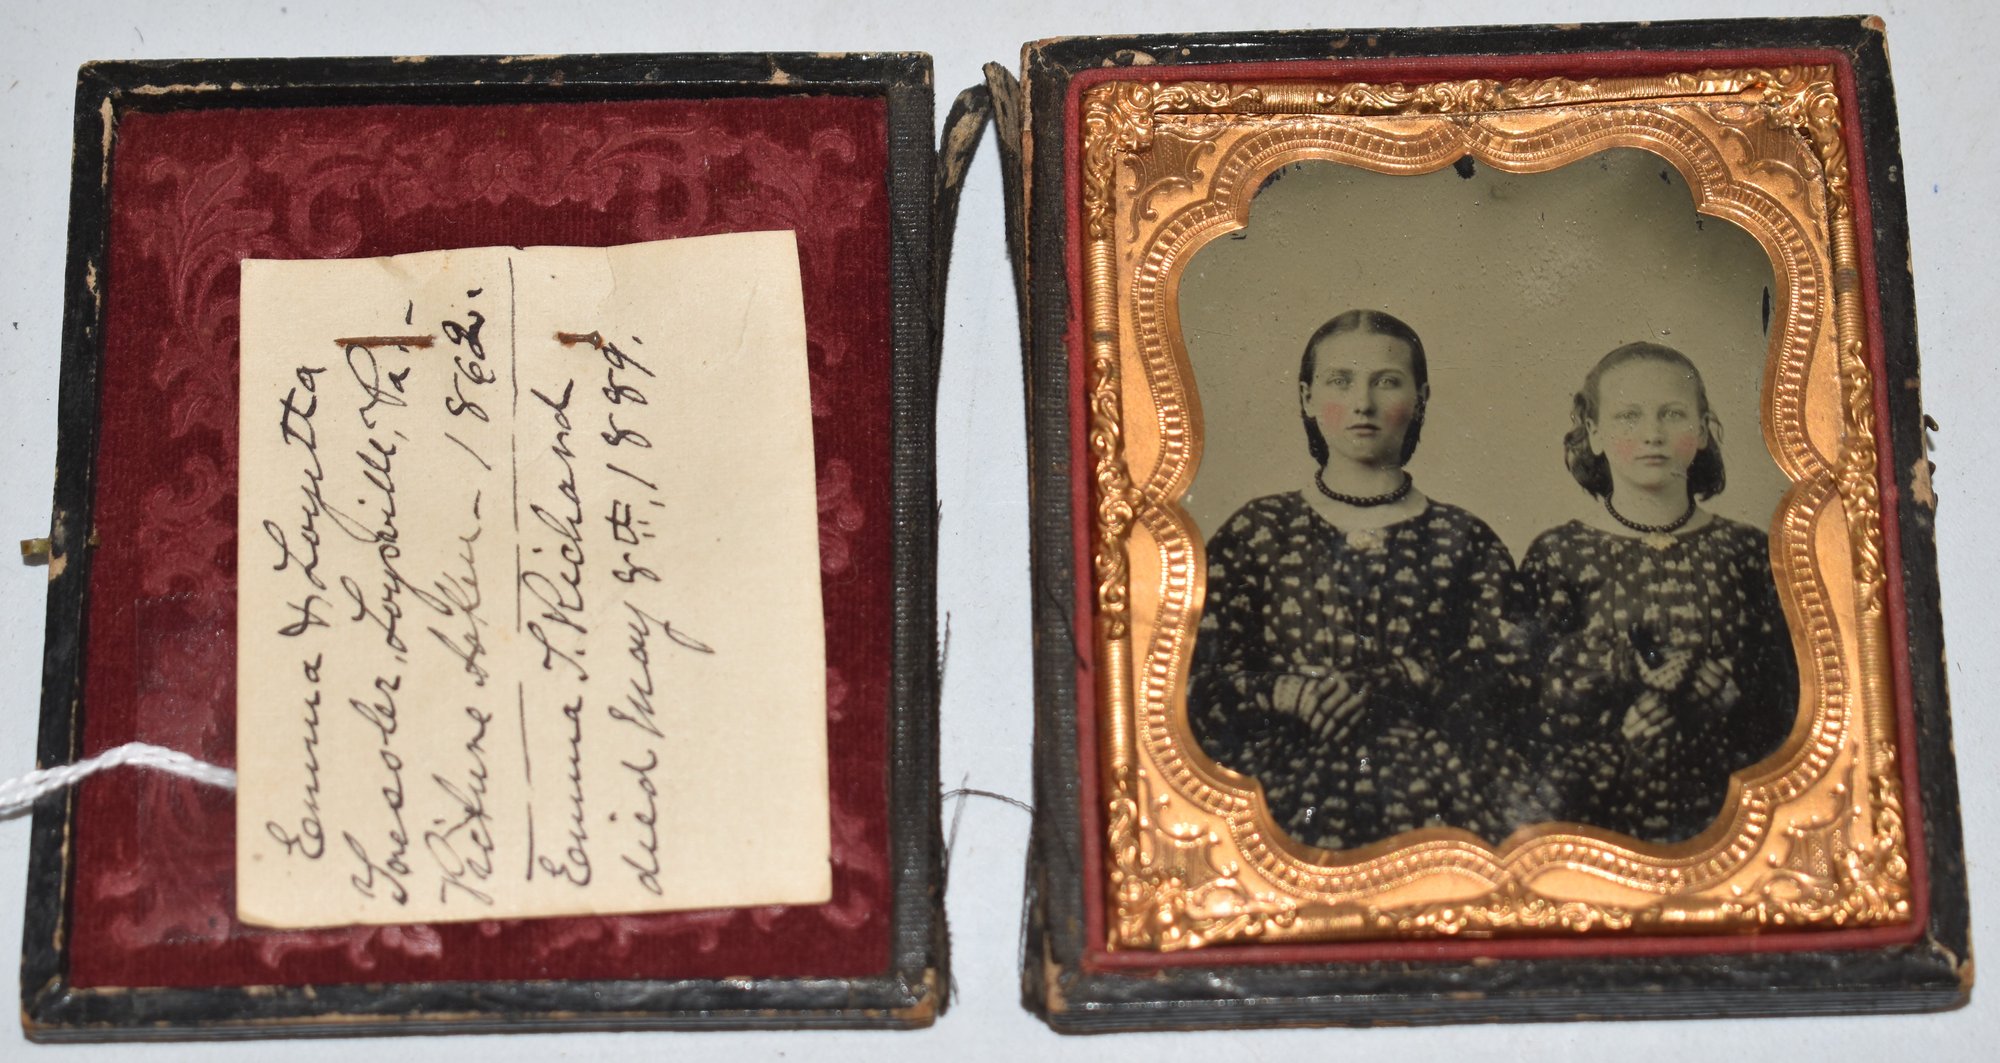 Emma & Loyetta
Tressler, Loysville, Pa. -
Picture taken - 1862.
Emma T. Richard
died May 8th, 1889.